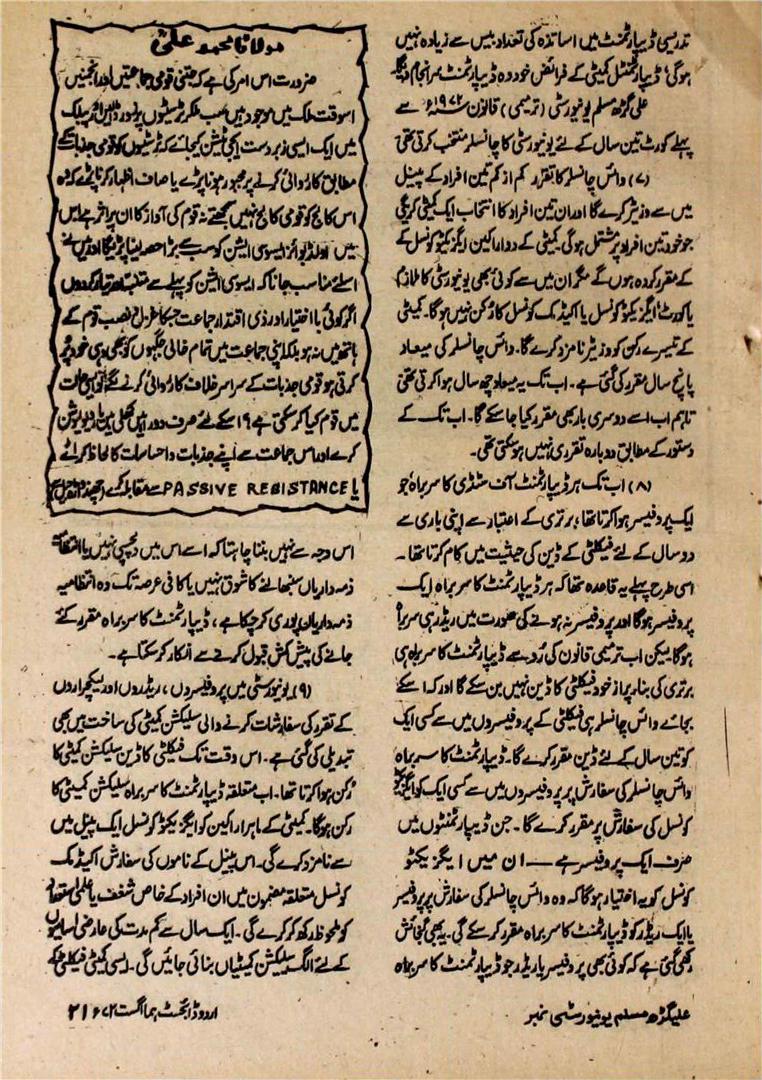 تدریسی ڈیپارٹمنٹ میں اساتذہ کی تعداد بیس سے زیادہ نہیں
ہوگی، ڈیپارٹمنٹل کمیٹی کے فرائض خود وہ ڈیپارٹمنٹ سرانجام دیگا
علی گڑھ مسلم یونیورسٹی (ترمیمی) قانون ۱۹۷۲ء سے
پہلے کورٹ تین سال کے لئے یونیورسٹی کا چانسلر منتخب کرتی تھی
(۷) وائس چانسلر کا تقرر کم از کم تین افراد کے پینل
میں سے وزیٹر کرے گا اور ان تین افراد کا انتخاب ایک کمیٹی کریگی
جو خود تین افراد پر مشتمل ہوگی۔ کمیٹی کے دو اراکین ایگزیکٹو کونسل کے
کے مقرر کردہ ہوں گے مگر ان میں سے کوئی بھی یونیورسٹی کا ملازم
یا کورٹ، ایگزیکٹو کونسل یا اکیڈمک کونسل کا رکن نہیں ہوگا۔ کمیٹی
کے تیسرے رکن کو وزیٹر نامزد کرے گا۔ وائس چانسلر کی میعاد
پانچ سال مقرر کی گئی ہے۔ اب تک یہ میعاد چھ سال ہوا کرتی تھی
تاہم اب اسے دوسری بار بھی مقرر کیا جا سکے گا۔ اب تک کے
دستور کے مطابق دوبارہ تقرری نہیں ہو سکتی تھی۔
(۸) اب تک ہر ڈیپارٹمنٹ آف سٹڈی کا سربراہ جو
ایک پروفیسر ہوا کرتا تھا، برتری کے اعتبار سے اپنی باری سے
دو سال کے لئے فیکلٹی کے ڈین کی حیثیت میں کام کرتا تھا۔
اسی طرح پہلے یہ قاعدہ تھا کہ ہر ڈیپارٹمنٹ کا سربراہ ایک
پروفیسر ہوگا اور پروفیسر نہ ہونے کی صورت میں ریڈر ہی سربراہ
ہوگا لیکن اب ترمیمی قانون کی رو سے ڈیپارٹمنٹ کا سربراہ ہی
برتری کی بناء پر از خود فیکلٹی کا ڈین نہیں بن سکے گا اور کہ اسکے
بجائے وائس چانسلر ہی فیکلٹی کے پروفیسروں میں سے کسی ایک
کو تین سال کے لئے ڈین مقرر کرے گا۔ ڈیپارٹمنٹ کا سربراہ
وائس چانسلر کی سفارش پر پروفیسروں میں سے کسی ایک کو ایگزیکٹو
کونسل کی سفارش پر مقرر کرے گا۔ جن ڈیپارٹمنٹوں میں
صرف ایک پروفیسر ہے — ان میں ایگزیکٹو
کونسل کو یہ اختیار ہوگا کہ وہ وائس چانسلر کی سفارش پر پروفیسر
یا ایک ریڈر کو ڈیپارٹمنٹ کا سربراہ مقرر کر سکے گی۔ یہ بھی گنجائش
رکھی گئی ہے کہ کوئی بھی پروفیسر یا ریڈر جو ڈیپارٹمنٹ کا سربراہ
مولانا محمد علیؒ
ضرورت اس امر کی ہے کہ جتنی قومی جماعتیں اور انجمنیں
اسوقت ملک میں موجود ہیں سب ملکر ٹرسٹیوں پر زور ڈالیں اور پبلک
میں ایک ایسی زبردست ایجی ٹیشن کیجائے کہ ٹرسٹیوں کو قومی جذبات کے
مطابق کاروائی کرنے پر مجبور ہونا پڑے یا صاف اظہار کرنا پڑے کہ وہ
اس کالج کو قومی کالج نہیں سمجھتے نہ قوم کی آواز کا ان پر اثر ہے اس
میں اولڈ بوائز ایسوسی ایشن کو سب سے بڑا حصہ لینا پڑیگا اور میں نے
اسلئے مناسب جانا کہ ایسوسی ایشن کو پہلے سے متنبہ اور تیار کردوں
اگر کوئی با اختیار اور ذی اقتدار جماعت جسکا عزل و نصب قوم کے
ہاتھ میں نہ ہو بلکہ اپنی جماعت میں تمام خالی جگہوں کو بھی وہی خود پر
کرتی ہو قومی جذبات کے سراسر خلاف کاروائی کرنے لگے تو ایسی حالت
میں قوم کیا کر سکتی ہے؟ اسکے لئے صرف دو راہیں کھلی ہیں یا ریولیوشن
کرے اور اس جماعت سے اپنے جذبات و احساسات کا لحاظ کرائے
یا PASSIVE RESISTANCE سے مقابلہ کرے
اس وجہ سے نہیں بننا چاہتا کہ اسے اس میں دلچسپی نہیں یا انتظامی
ذمہ داریاں سنبھالنے کا شوق نہیں یا کافی عرصہ تک وہ انتظامیہ
ذمہ داریاں پوری کر چکا ہے، ڈیپارٹمنٹ کا سربراہ مقرر کئے
جانے کی پیش کش قبول کرنے سے انکار کر سکتا ہے۔
(۹) یونیورسٹی میں پروفیسروں، ریڈروں اور لیکچراروں
کے تقرر کی سفارشات کرنے والی سلیکشن کمیٹی کی ساخت میں بھی
تبدیلی کی گئی ہے۔ اس وقت تک فیکلٹی کا ڈین سلیکشن کمیٹی کا
رکن ہوا کرتا تھا۔ اب متعلقہ ڈیپارٹمنٹ کا سربراہ سلیکشن کمیٹی کا
رکن ہوگا۔ کمیٹی کے ماہر اراکین کو ایگزیکٹو کونسل ایک پینل میں
سے نامزد کرے گی۔ اس پینل کے ناموں کی سفارش اکیڈمک
کونسل متعلقہ مضمون میں ان افراد کے خاص شغف یا علمی استعداد
کو ملحوظ رکھ کر کرے گی۔ ایک سال سے کم مدت کی عارضی اسامیوں
کے لئے الگ سلیکشن کمیٹیاں بنائی جائیں گی۔ ایسی کمیٹی فیکلٹی کے
علیگڑھ مسلم یونیورسٹی نمبر
اردو ڈائجسٹ ہما اگست ۷۲ء ۲۱